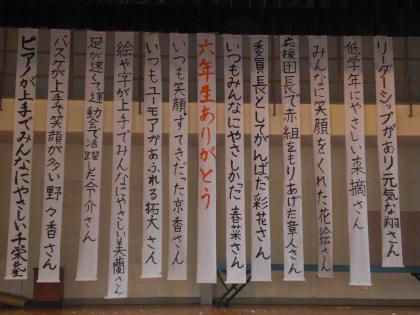 リーダーシップがあり元気な翔さん
低学年にやさしい菜摘さん
みんなに笑顔をくれた花絵さん
応援団長で赤組をもりあげた章人さん
委員長としてがんばった彩花さん
いつもみんなにやさしかった春菜さん
六年生ありがとう
いつも笑顔がすてきだった京香さん
いつもユーモアがあふれる拓大さん
絵や字が上手でみんなにやさしい美蘭さん
足が速くて運動会で活躍した今介さん
バスケが上手で笑顔が多い野々香さん
ピアノが上手でみんなにやさしい千栄